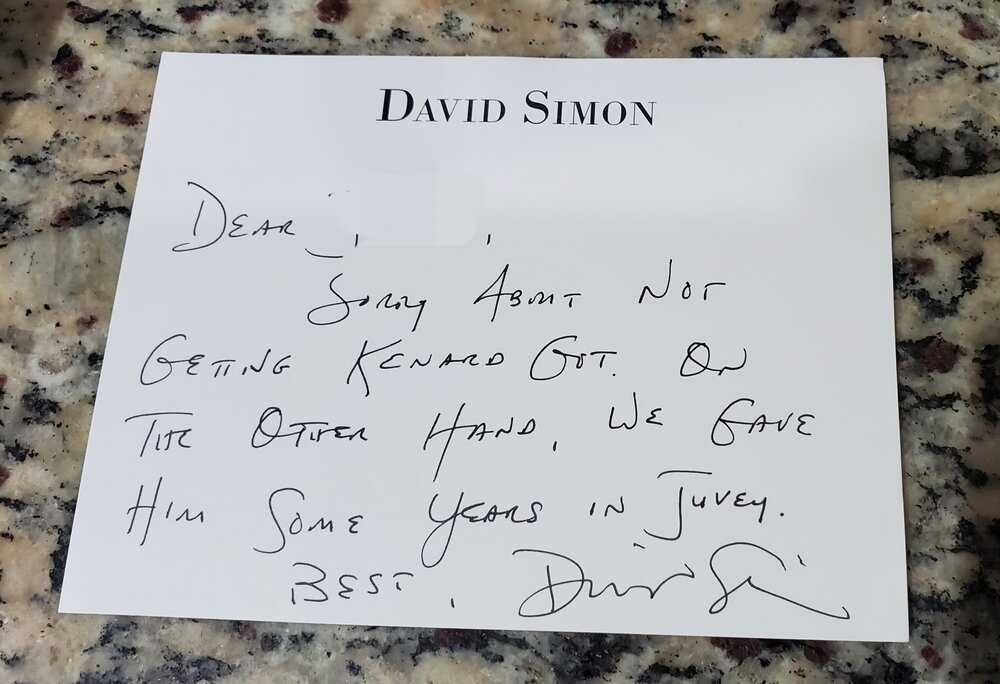 DAVID SIMON
DEAR ,
SORRY ABOUT NOT
GETTING KENARD GOT. ON
THE OTHER HAND, WE GAVE
HIM SOME YEARS IN JUVEY.
BEST, David Simon